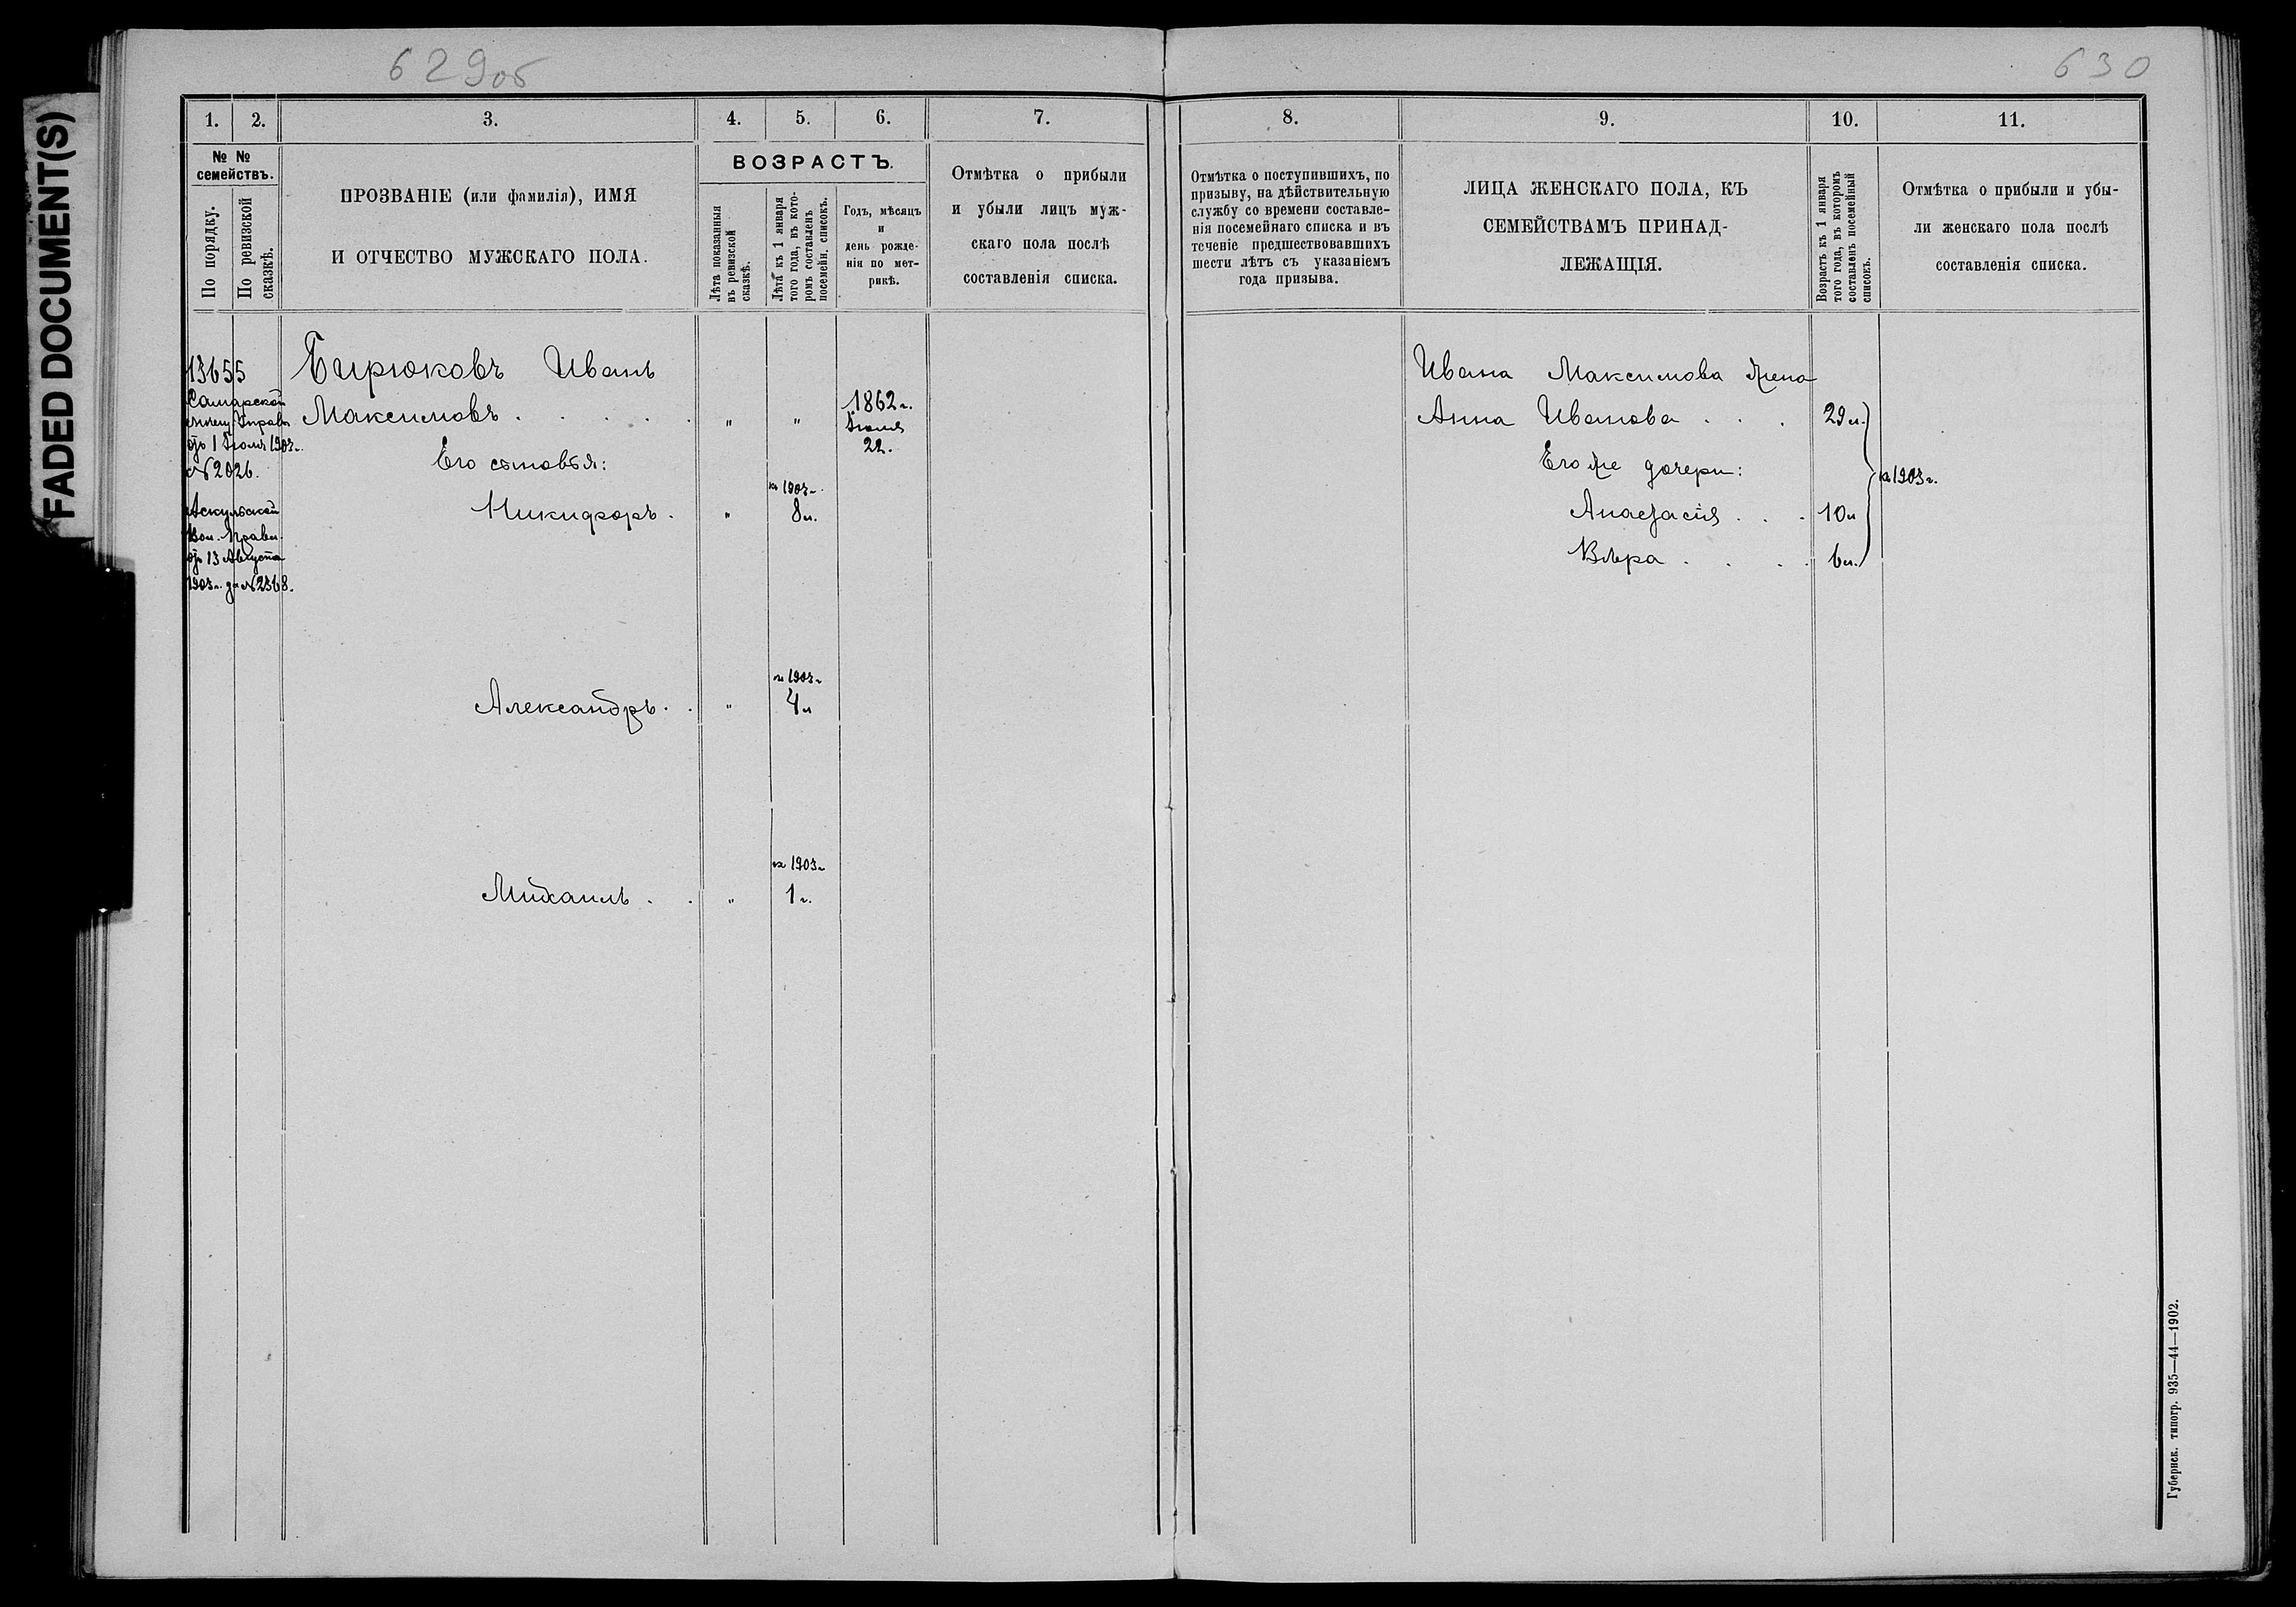 629об
630
FADED DOCUMENT(S)
1.
2.
3.
4.
5.
6.
7.
8.
9.
10.
11.
№ №
семействъ.
По порядку.
По ревизской
сказкѣ.
ПРОЗВАНІЕ (или фамилія), ИМЯ
И ОТЧЕСТВО МУЖСКАГО ПОЛА.
ВОЗРАСТЪ.
Лѣта показанныя
въ ревизской
сказкѣ.
Лѣта къ 1 января
того года, въ кото-
ромъ составленъ
посемейн. списокъ.
Годъ, мѣсяцъ
и
день рожде-
нія по мет-
рикѣ.
Отмѣтка о прибыли
и убыли лицъ муж-
скаго пола послѣ
составленія списка.
Отмѣтка о поступившихъ, по
призыву, на дѣйствительную
службу со времени составле-
нія посемейнаго списка и въ
теченіе предшествовавшихъ
шести лѣтъ съ указаніемъ
года призыва.
ЛИЦА ЖЕНСКАГО ПОЛА, КЪ
СЕМЕЙСТВАМЪ ПРИНАД-
ЛЕЖАЩІЯ.
Возрастъ къ 1 января
того года, въ которомъ
составленъ посемейный
списокъ.
Отмѣтка о прибыли и убы-
ли женскаго пола послѣ
составленія списка.
13655
Самарской
мѣщ. Управы
отъ 1 Іюля 1903 г.
№ 2026.
Аскульской
Вол. Правл.
отъ 13 Августа
1903 г. за № 2368.
Бирюковъ Иванъ
Максимовъ . . . . . „ „ 1862 г.
Іюня
22.
Его сыновья:
на 1903 г.
Никифоръ . „ 8 л.
на 1903 г.
Александръ . . „ 4 л
на 1903 г.
Михаилъ . . „ 1 г.
Ивана Максимова жена
Анна Иванова . . . 29 л.
Его же дочери:
на 1903 г.
Анастасія . . . 10 л
Вѣра . . . . 6 л.
Губернск. типогр. 935—44—1902.